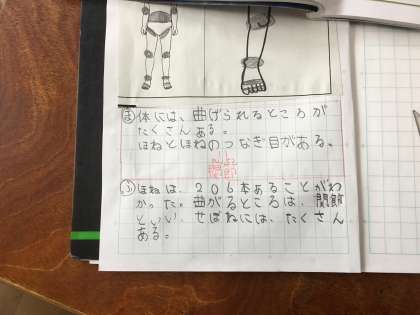 ま 体には、曲げられるところが
たくさんある。
ほねとほねのつなぎ目がある。
関節
ふ ほねは、206本あることがわ
かった。曲がるところは、関節
といい、せぼねには、たくさん
ある。